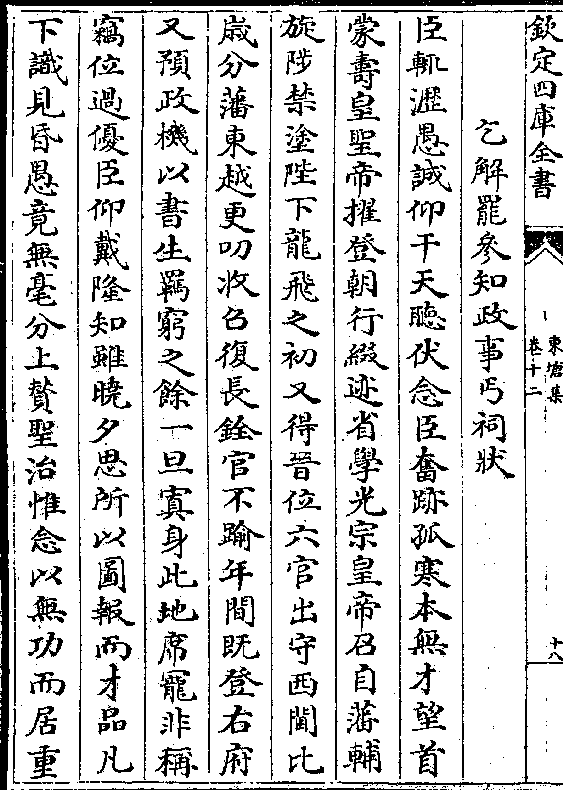 欽定四庫全書
東塘集
卷十二
十八
乞解罷參知政事丐祠狀
臣輒瀝愚誠仰干天聽伏念臣奮跡孤寒本無才望首
蒙壽皇聖帝擢登朝行綴迹省學光宗皇帝召自藩輔
旋陟禁塗陛下龍飛之初又得晉位六官出守西閫比
歲分藩東越更叨收召復長銓官不踰年間既登右府
又預政機以書生羈窮之餘一旦寘身此地席寵非稱
竊位過優臣仰戴隆知雖曉夕思所以圖報而才品凡
下識見昏愚竟無毫分上贊聖治惟念以無功而居重